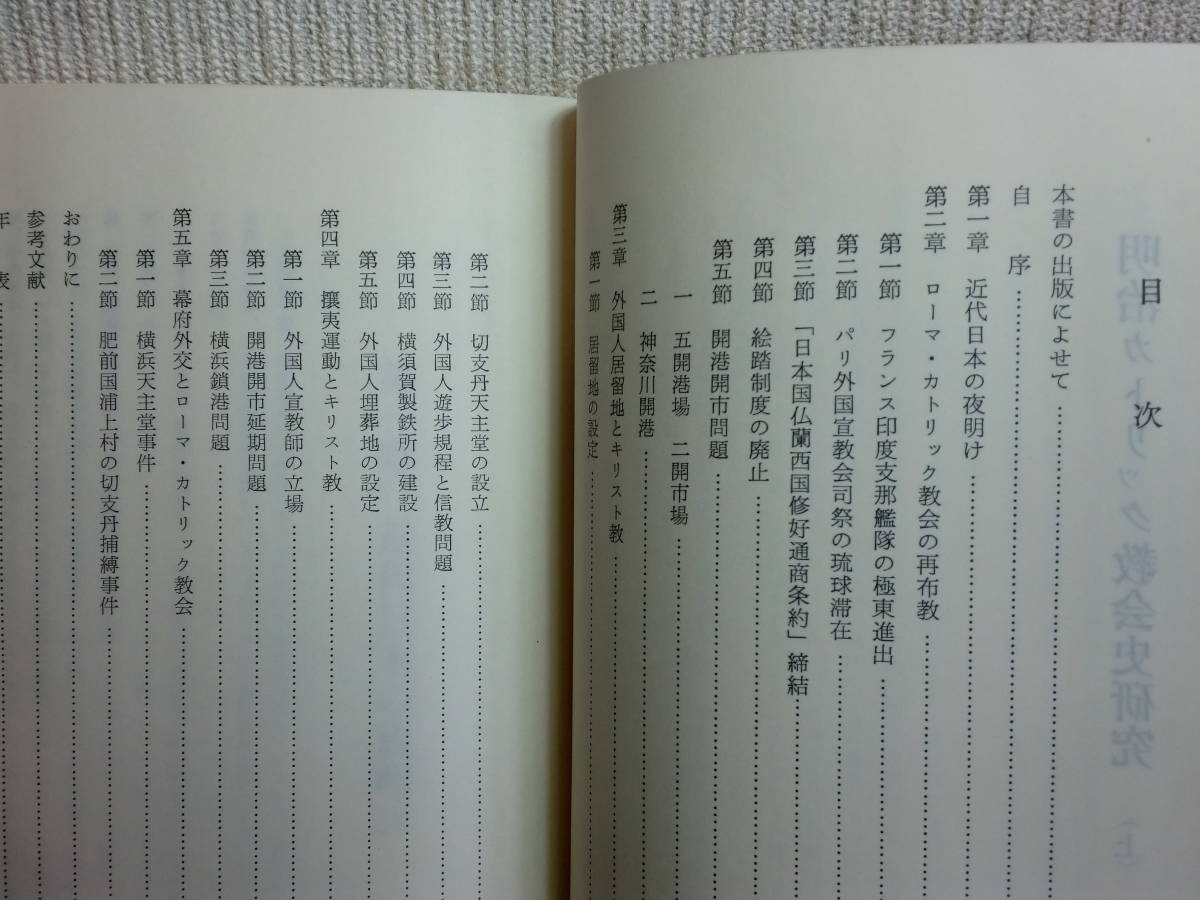 目次
本書の出版によせて
自序
第一章 近代日本の夜明け
第二章 ローマ・カトリック教会の再布教
第一節 フランス印度支那艦隊の極東進出
第二節 パリ外国宣教会司祭の琉球滞在
第三節 「日本国仏蘭西国修好通商条約」締結
第四節 絵踏制度の廃止
第五節 開港開市問題
一 五開港場 二開市場
二 神奈川開港
第三章 外国人居留地とキリスト教
第一節 居留地の設定
第二節 切支丹天主堂の設立
第三節 外国人遊歩規程と信教問題
第四節 横須賀製鉄所の建設
第五節 外国人埋葬地の設定
第四章 攘夷運動とキリスト教
第一節 外国人宣教師の立場
第二節 開港開市延期問題
第三節 横浜鎖港問題
第五章 幕府外交とローマ・カトリック教会
第一節 横浜天主堂事件
第二節 肥前国浦上村の切支丹捕縛事件
おわりに
参考文献
年表
明治カトリック教会史研究 (上